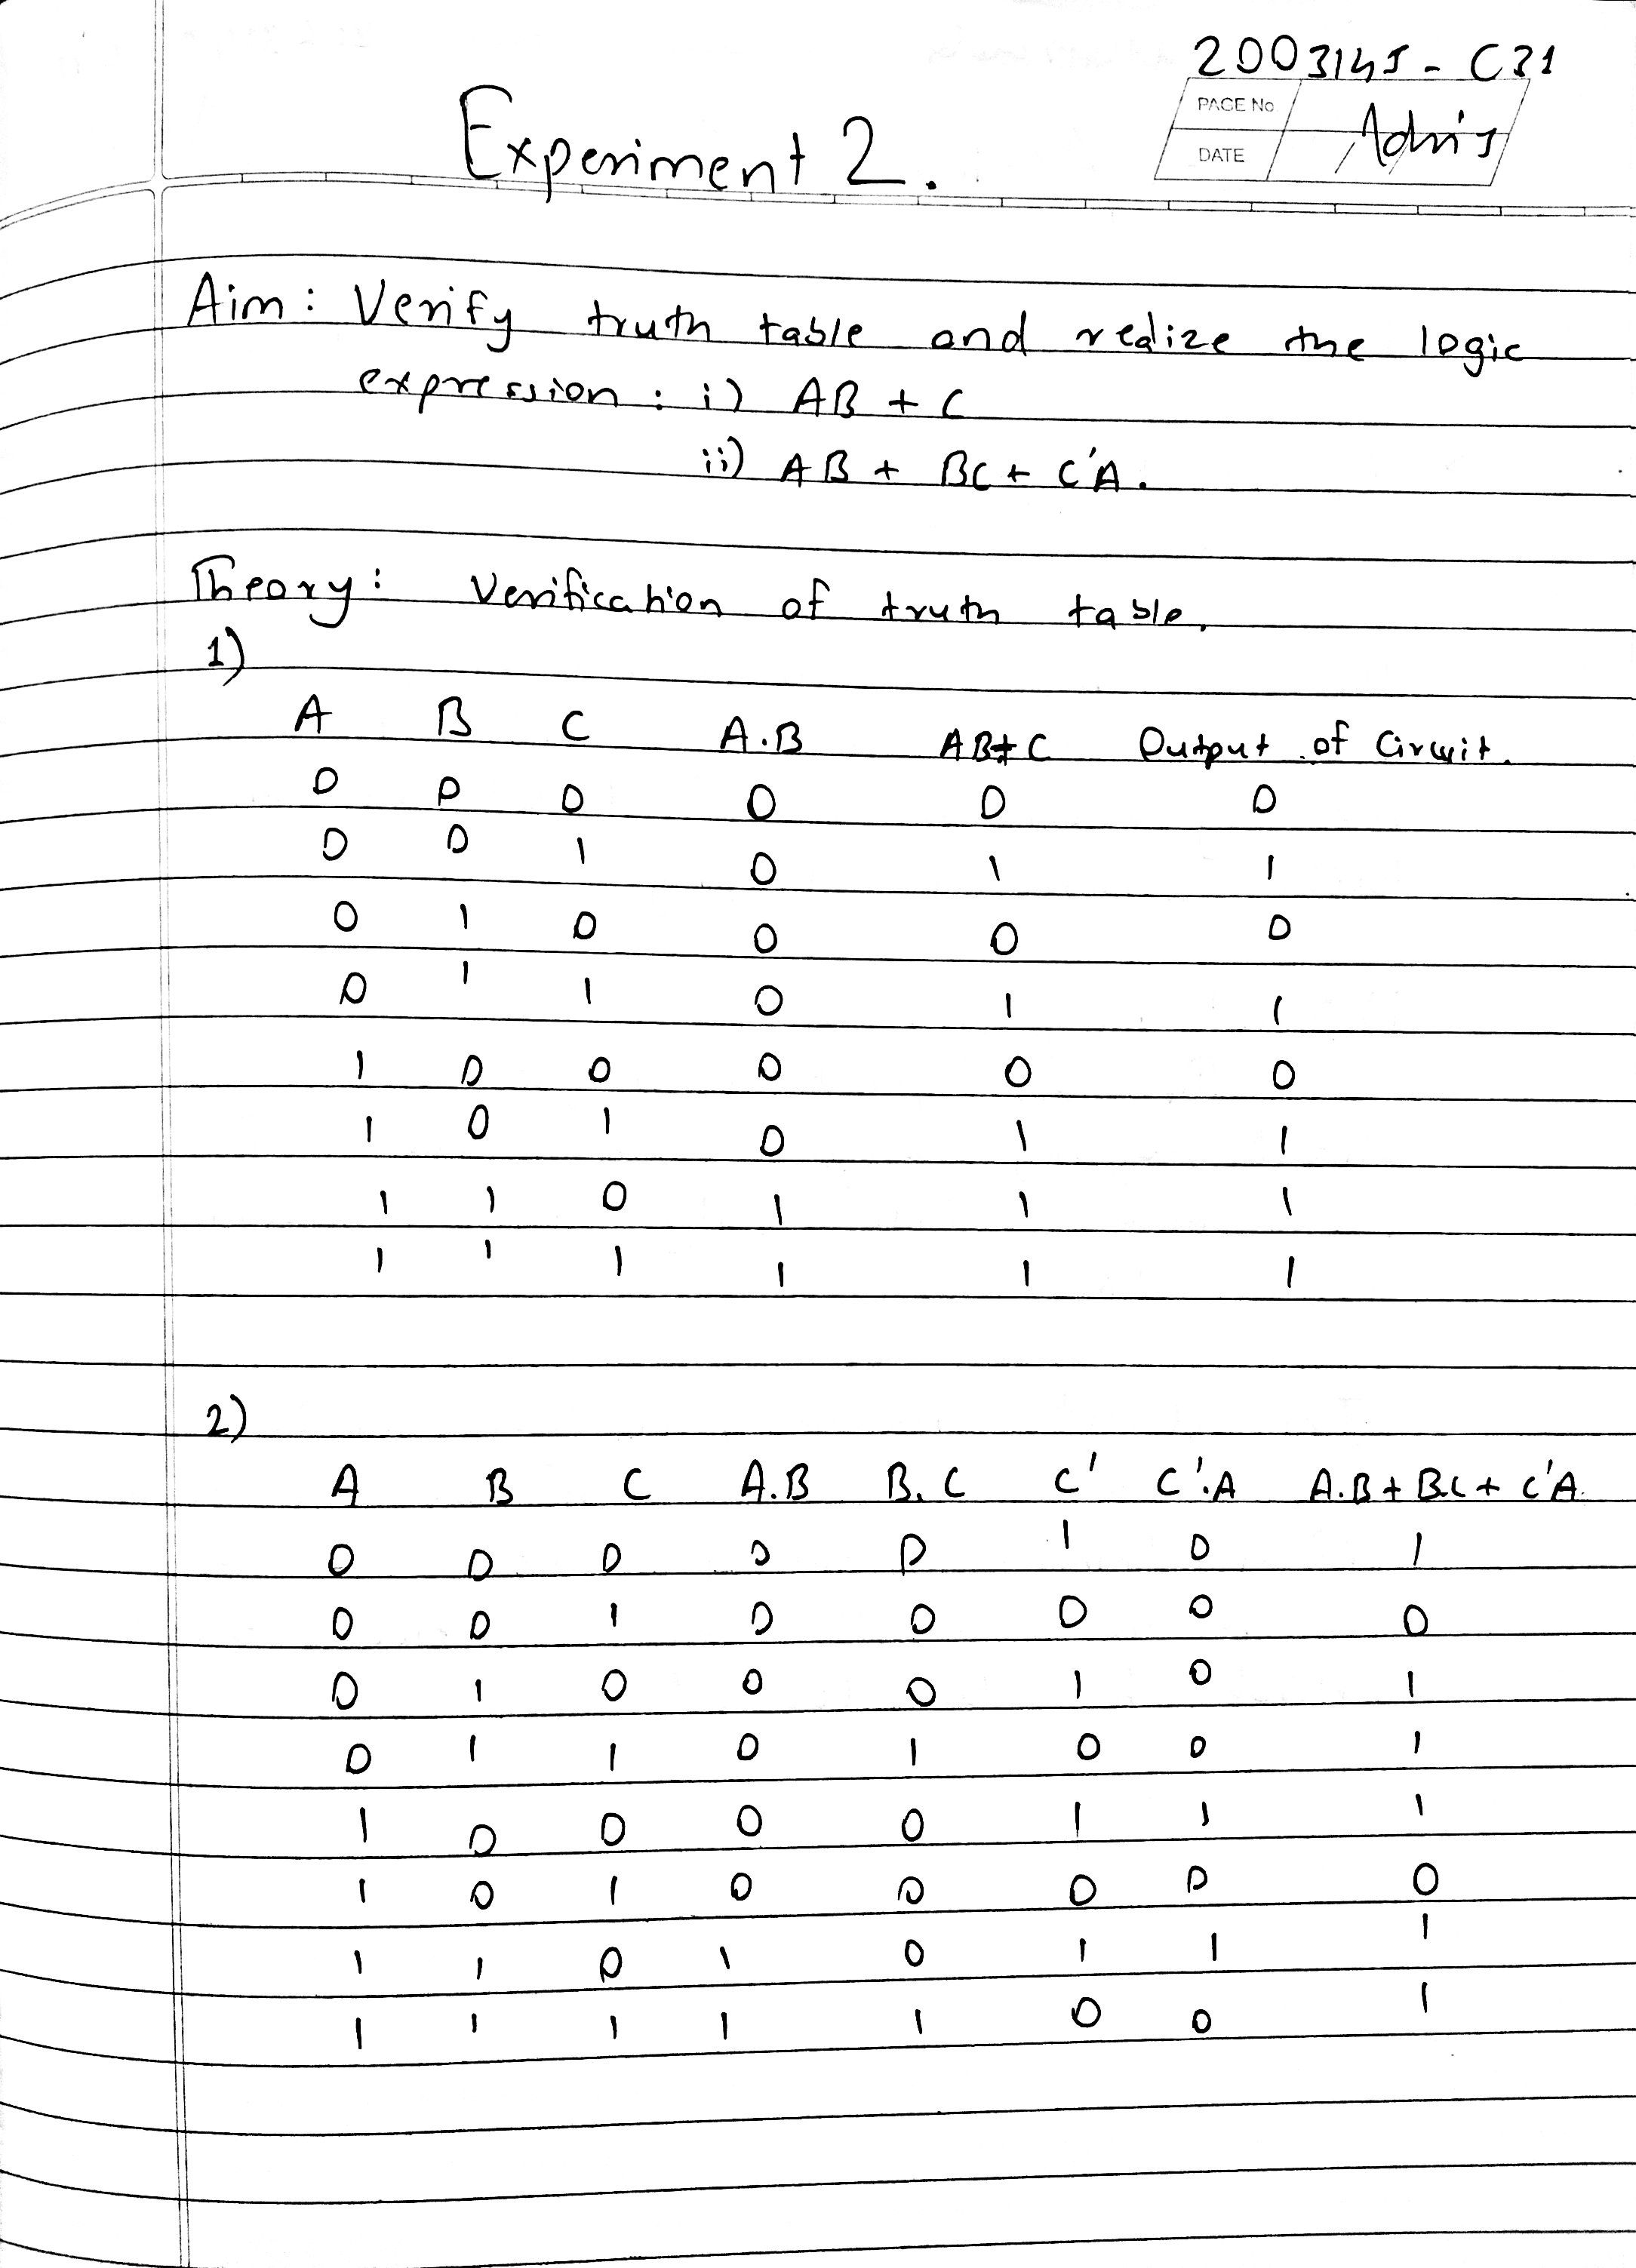 2003145 - C31
PAGE No
DATE
Experiment 2.
Aim : Verify truth table and realize the logic
expression : i) AB + C
ii) AB + BC + C'A.
Theory : Verification of truth table.
1)
A B C A.B AB+C Output of Circuit.
0 0 0 0 0 0
0 0 1 0 1 1
0 1 0 0 0 0
0 1 1 0 1 1
1 0 0 0 0 0
1 0 1 0 1 1
1 1 0 1 1 1
1 1 1 1 1 1
2)
A B C A.B B.C C' C'.A A.B + B.C + C'A.
0 0 0 0 0 1 0 1
0 0 1 0 0 0 0 0
0 1 0 0 0 1 0 1
0 1 1 0 1 0 0 1
1 0 0 0 0 1 1 1
1 0 1 0 0 0 0 0
1 1 0 1 0 1 1 1
1 1 1 1 1 0 0 1